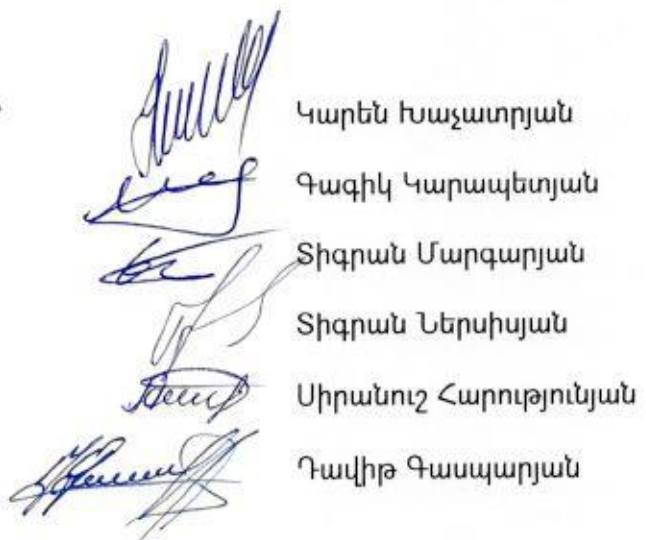 Կարեն Խաչատրյան
Գագիկ Կարապետյան
Տիգրան Մարգարյան
Տիգրան Ներսիսյան
Սիրանուշ Հարությունյան
Դավիթ Գասպարյան